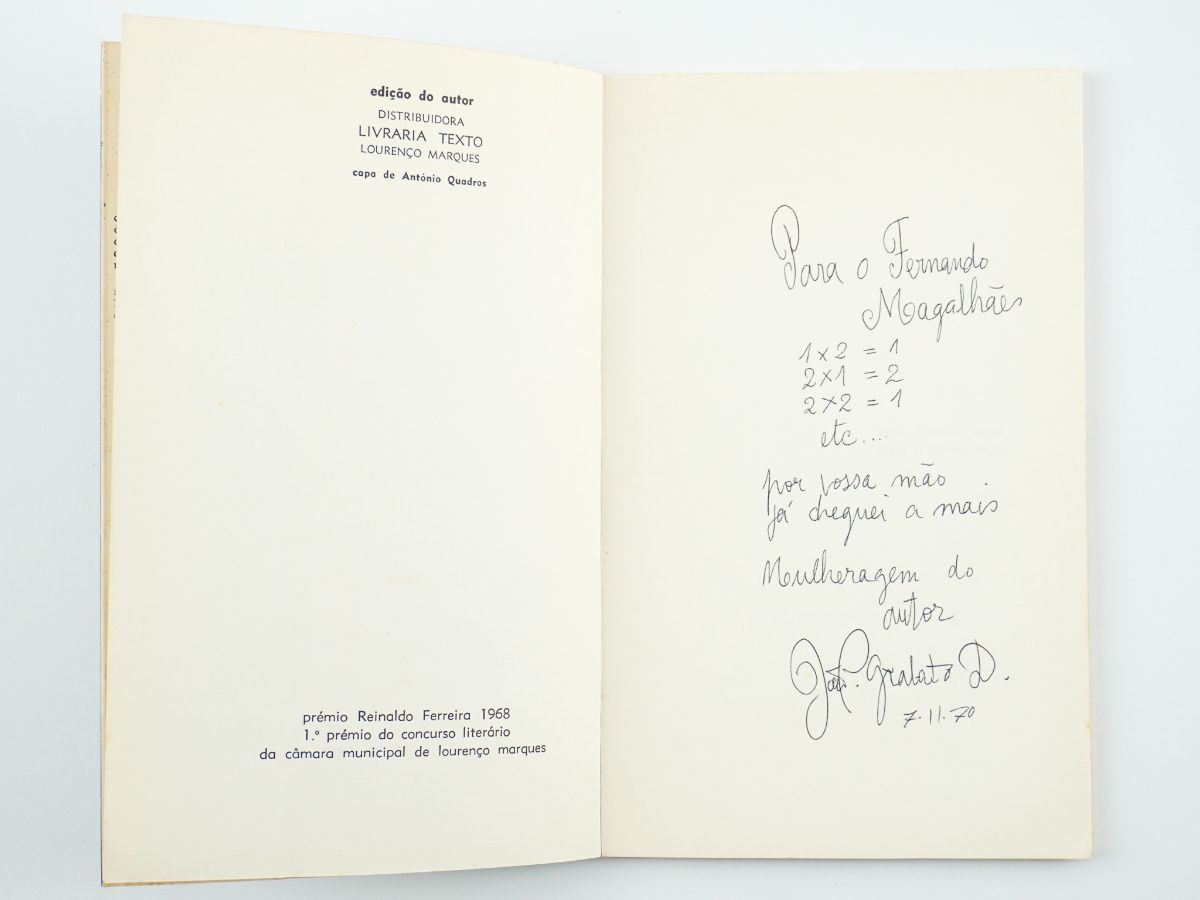 edição do autor
DISTRIBUIDORA
LIVRARIA TEXTO
LOURENÇO MARQUES
capa de António Quadros
prémio Reinaldo Ferreira 1968
1.º prémio do concurso literário
da câmara municipal de lourenço marques
Para o Fernando
Magalhães
1 x 2 = 1
2 x 1 = 2
2 x 2 = 1
etc...
por vossa mão
já cheguei a mais
Mulheragem do
autor
Grabato D.
7.11.70